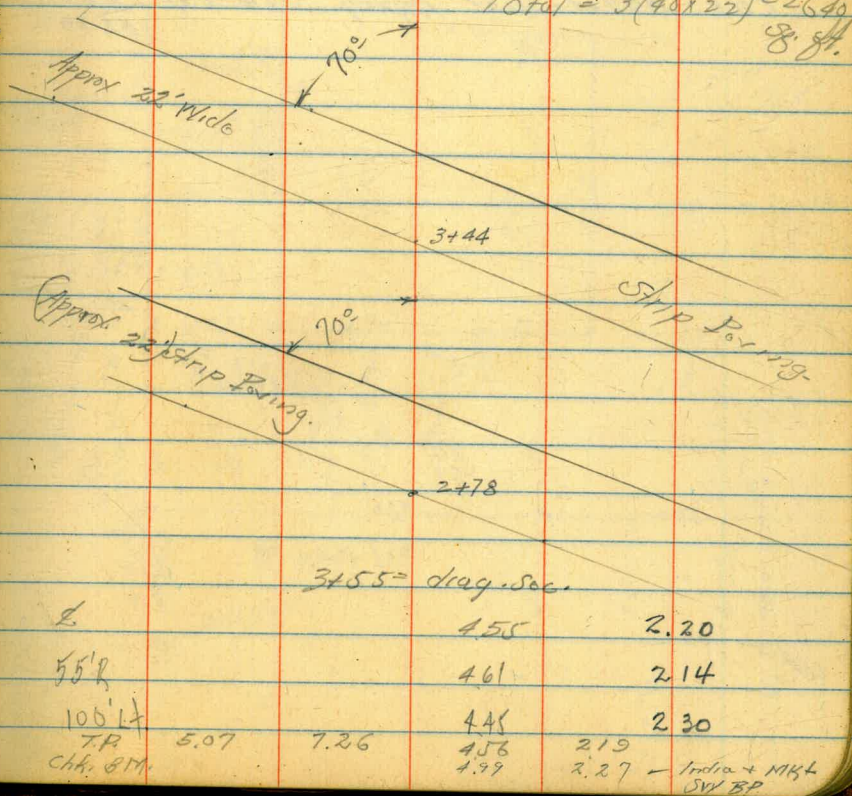 Total = 3(40x22) = 2640
sq. ft.
70°
Approx 22' Wide
3+44
Strip Paving
(Approx. 22') Strip Paving.
70°
2+78
3+55 = diag. Sec.
℄ 4.55 2.20
55'R 4.61 2.14
100'Lt. 4.45 2.30
T.P. 5.07 7.26 4.56 2.19
Chk. B.M. 4.99 2.27 - India + Mkt
SW BP